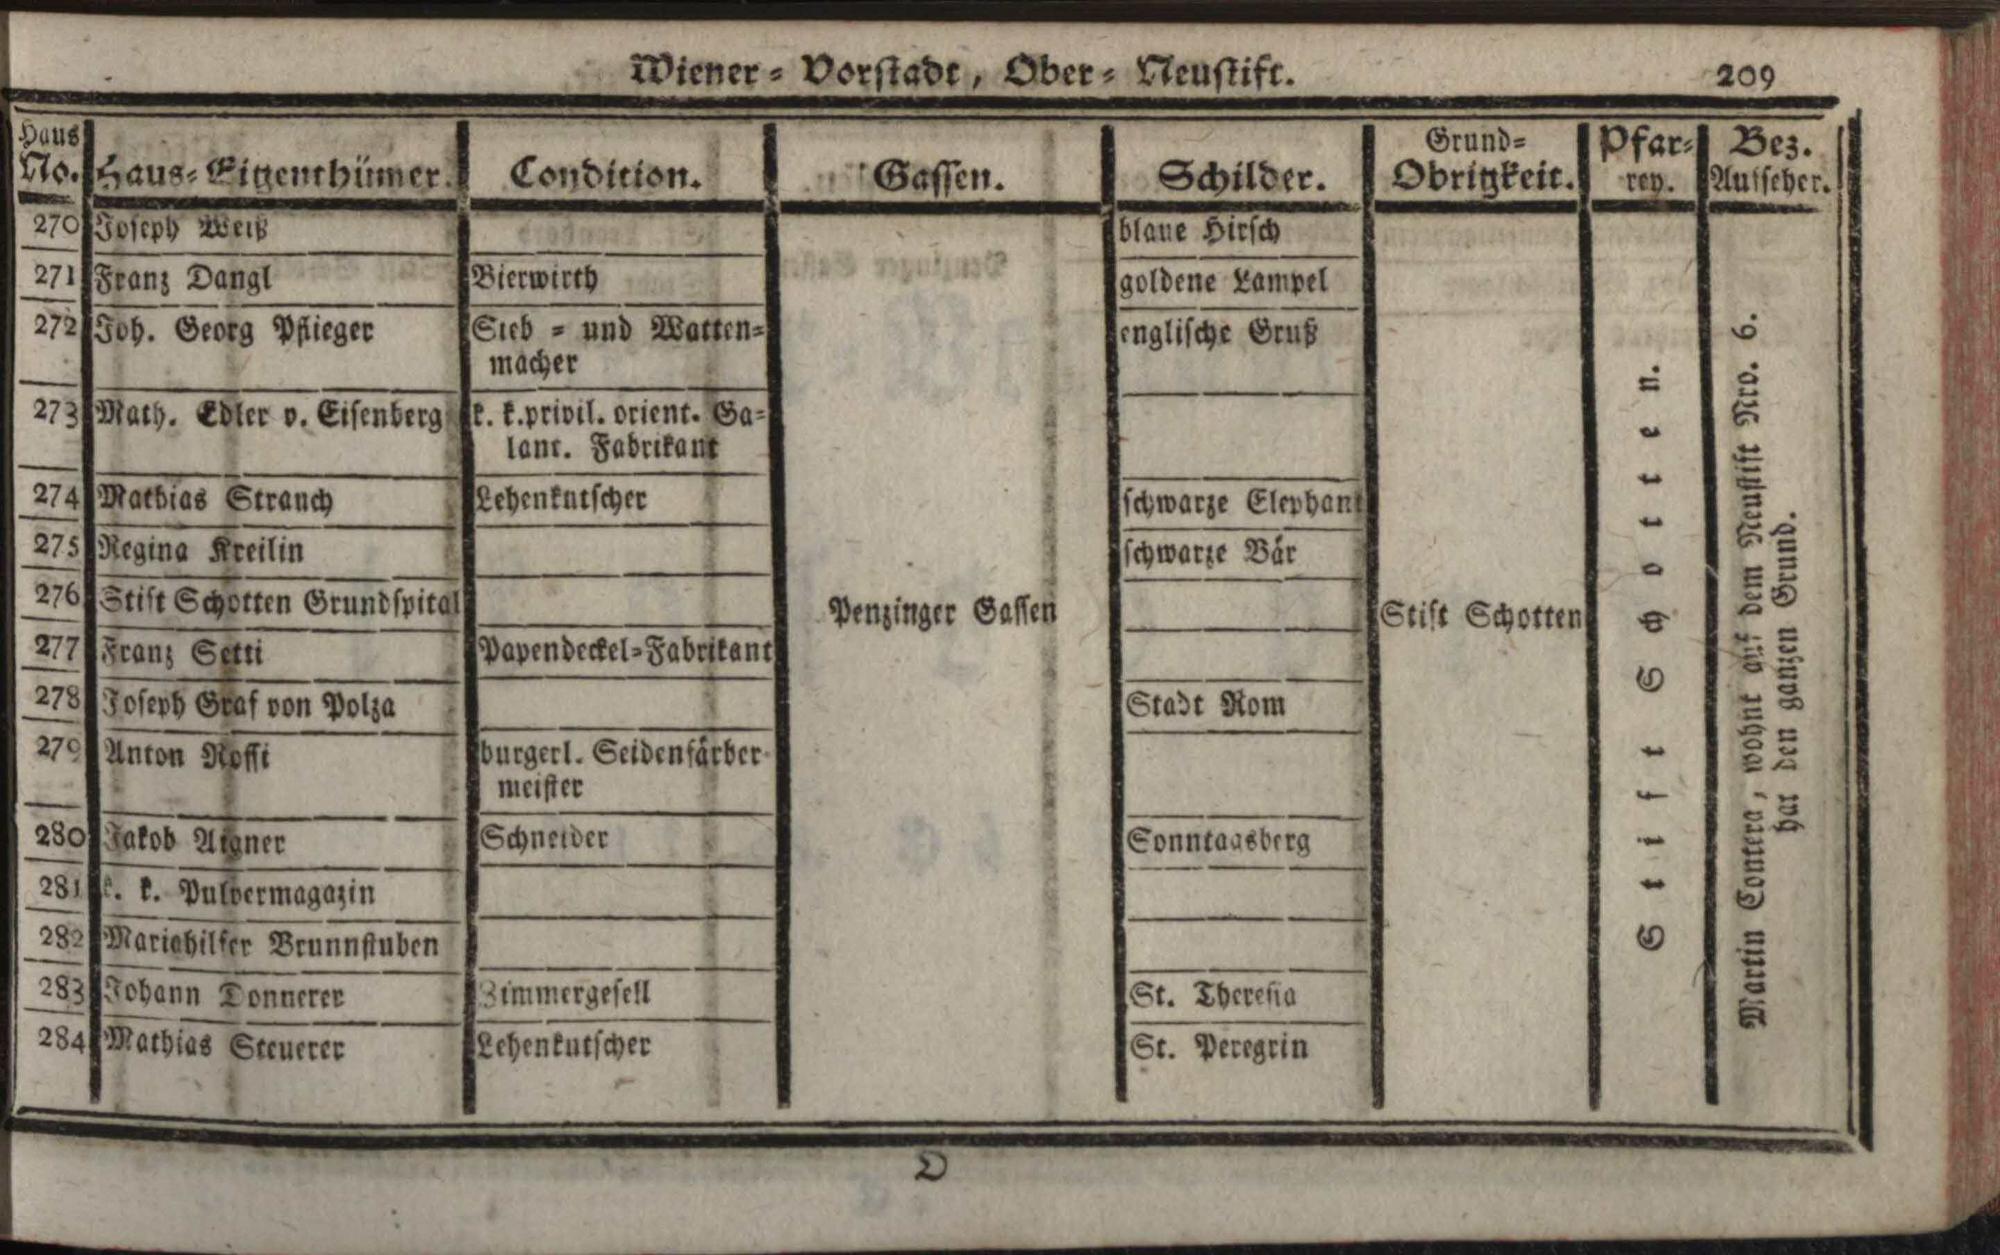 Wiener-Vorstadt, Ober-Neustift. 209
Haus No. Haus-Eigenthümer. Condition. Gassen. Schilder. Grund-Obrigkeit. Pfar-rey. Bez. Aufseher.
270 Joseph Weiß blaue Hirsch
271 Franz Dangl Bierwirth goldene Lampel
272 Joh. Georg Pflieger Sieb- und Watten- englische Gruß
macher
273 Math. Edler v. Eisenberg k. k. privil. orient. Ga-
lant. Fabrikant
274 Mathias Strauch Lehenkutscher schwarze Elephant
275 Regina Kreilin schwarze Bär
276 Stift Schotten Grundspital
Penzinger Gassen Stift Schotten
277 Franz Setti Papendeckel-Fabrikant
278 Joseph Graf von Polza Stadt Rom
279 Anton Rossi burgerl. Seidenfärber
meister
280 Jakob Aigner Schneider Sonntagsberg
281 k. k. Pulvermagazin
282 Mariahilfer Brunnstuben
283 Johann Donnerer Zimmergesell St. Theresia
284 Mathias Steuerer Lehenkutscher St. Peregrin
Stift Schotten.
Martin Contera, wohnt auf dem Neustift Nro. 6.
hat den ganzen Grund.
D